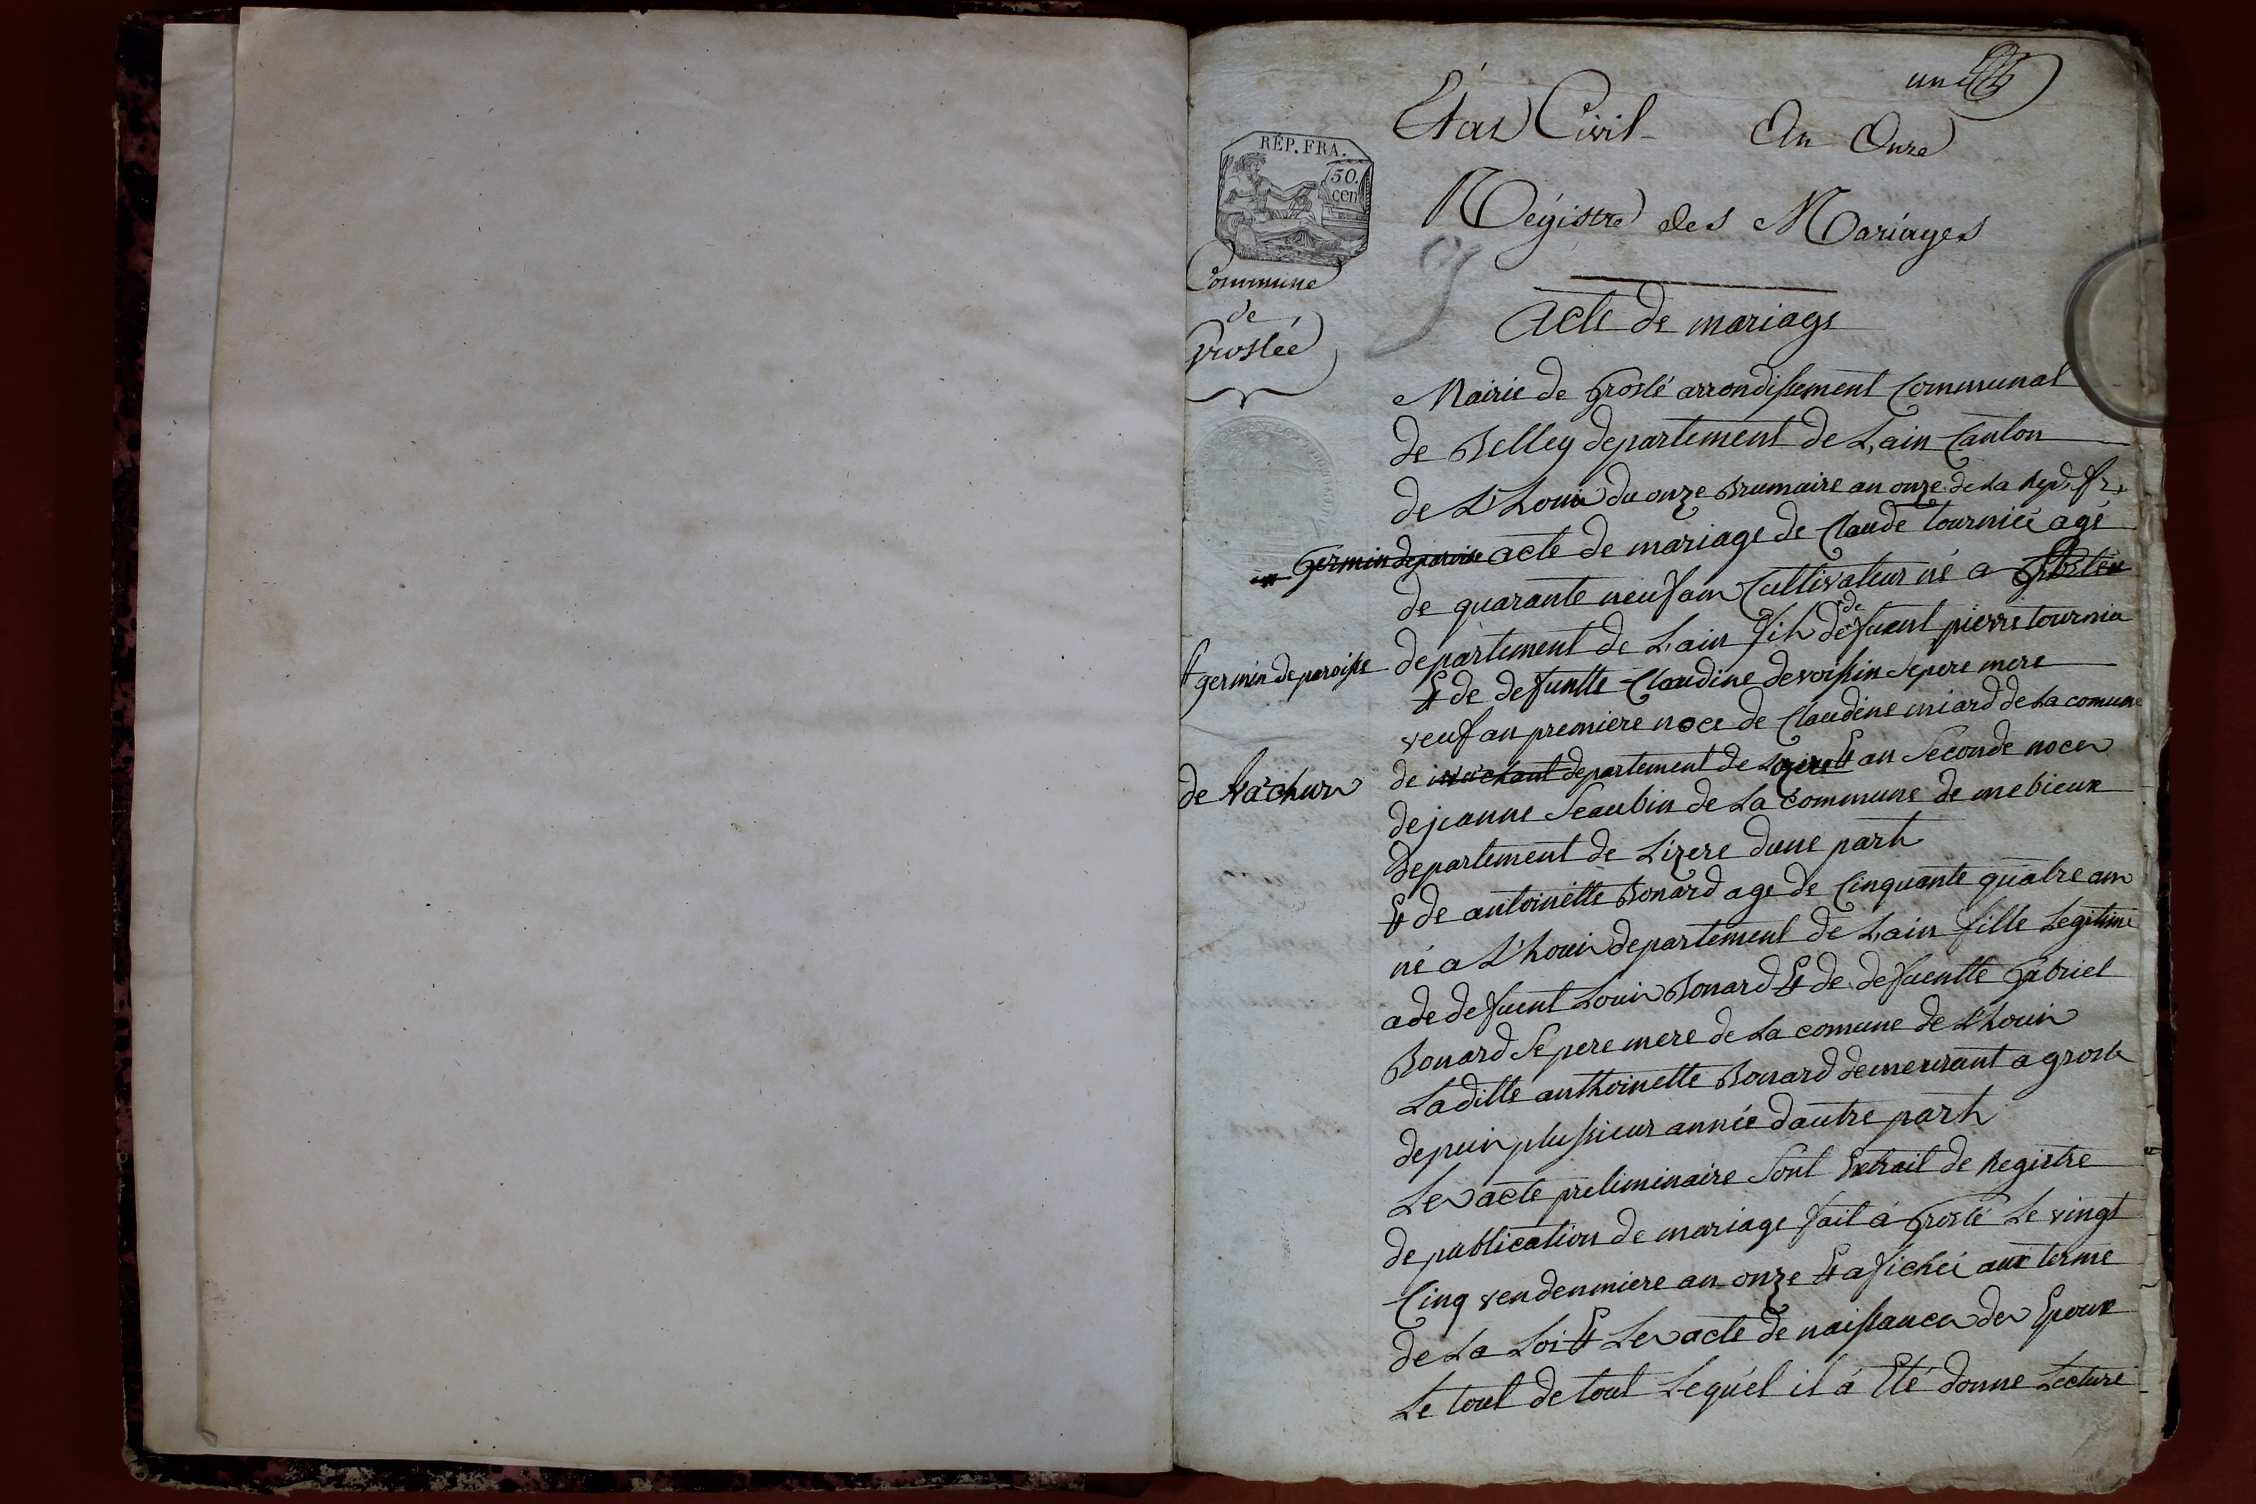 un
État Civil An Onze
RÉP. FRA.
50.
cen
Régistre des Mariages
Commune
de
Groslée
Acte de mariage
Mairie de Groslé arrondissement Communal
de Belley departement de L'ain Canton
de L'houis du onze Brumaire an onze de La rep. fr.
Germin deparoisse acte de mariage de Claude tournié agé
de quarante neuf ans Cultivateur né a Groslée
st germin de paroisse
departement de L'ain fils de defuent pierre tournie
& de defuntte Claudine devoissin se pere mere
veuf an premiere noce de Claudine miard de La comune
de vachers
de departement de Lizere & an Seconde noces
de jeanne Seaubin de La Commune de mebieux
Departement de Lizere dune part
& de antoinette Bonard age de Cinquante quatre ans
né a L'houis departement de L'ain fille Legitime
a de defuent Louis Bonard & de defuentte Gabriel
Bonard Se pere mere de La comune de L'houis
Laditte anthoinette Bonard demeurant a grosle
depuis plussieur année dautre part
Les acte preliminaire Sont Extrait de Registre
de publication de mariage fait á Groslé Le vingt
Cinq vendenmiere an onze & afichéi aux terme
de La Loi & Les acte de naissances des Epoux
Le tout de tout Lequel il á Eté donne Lecture